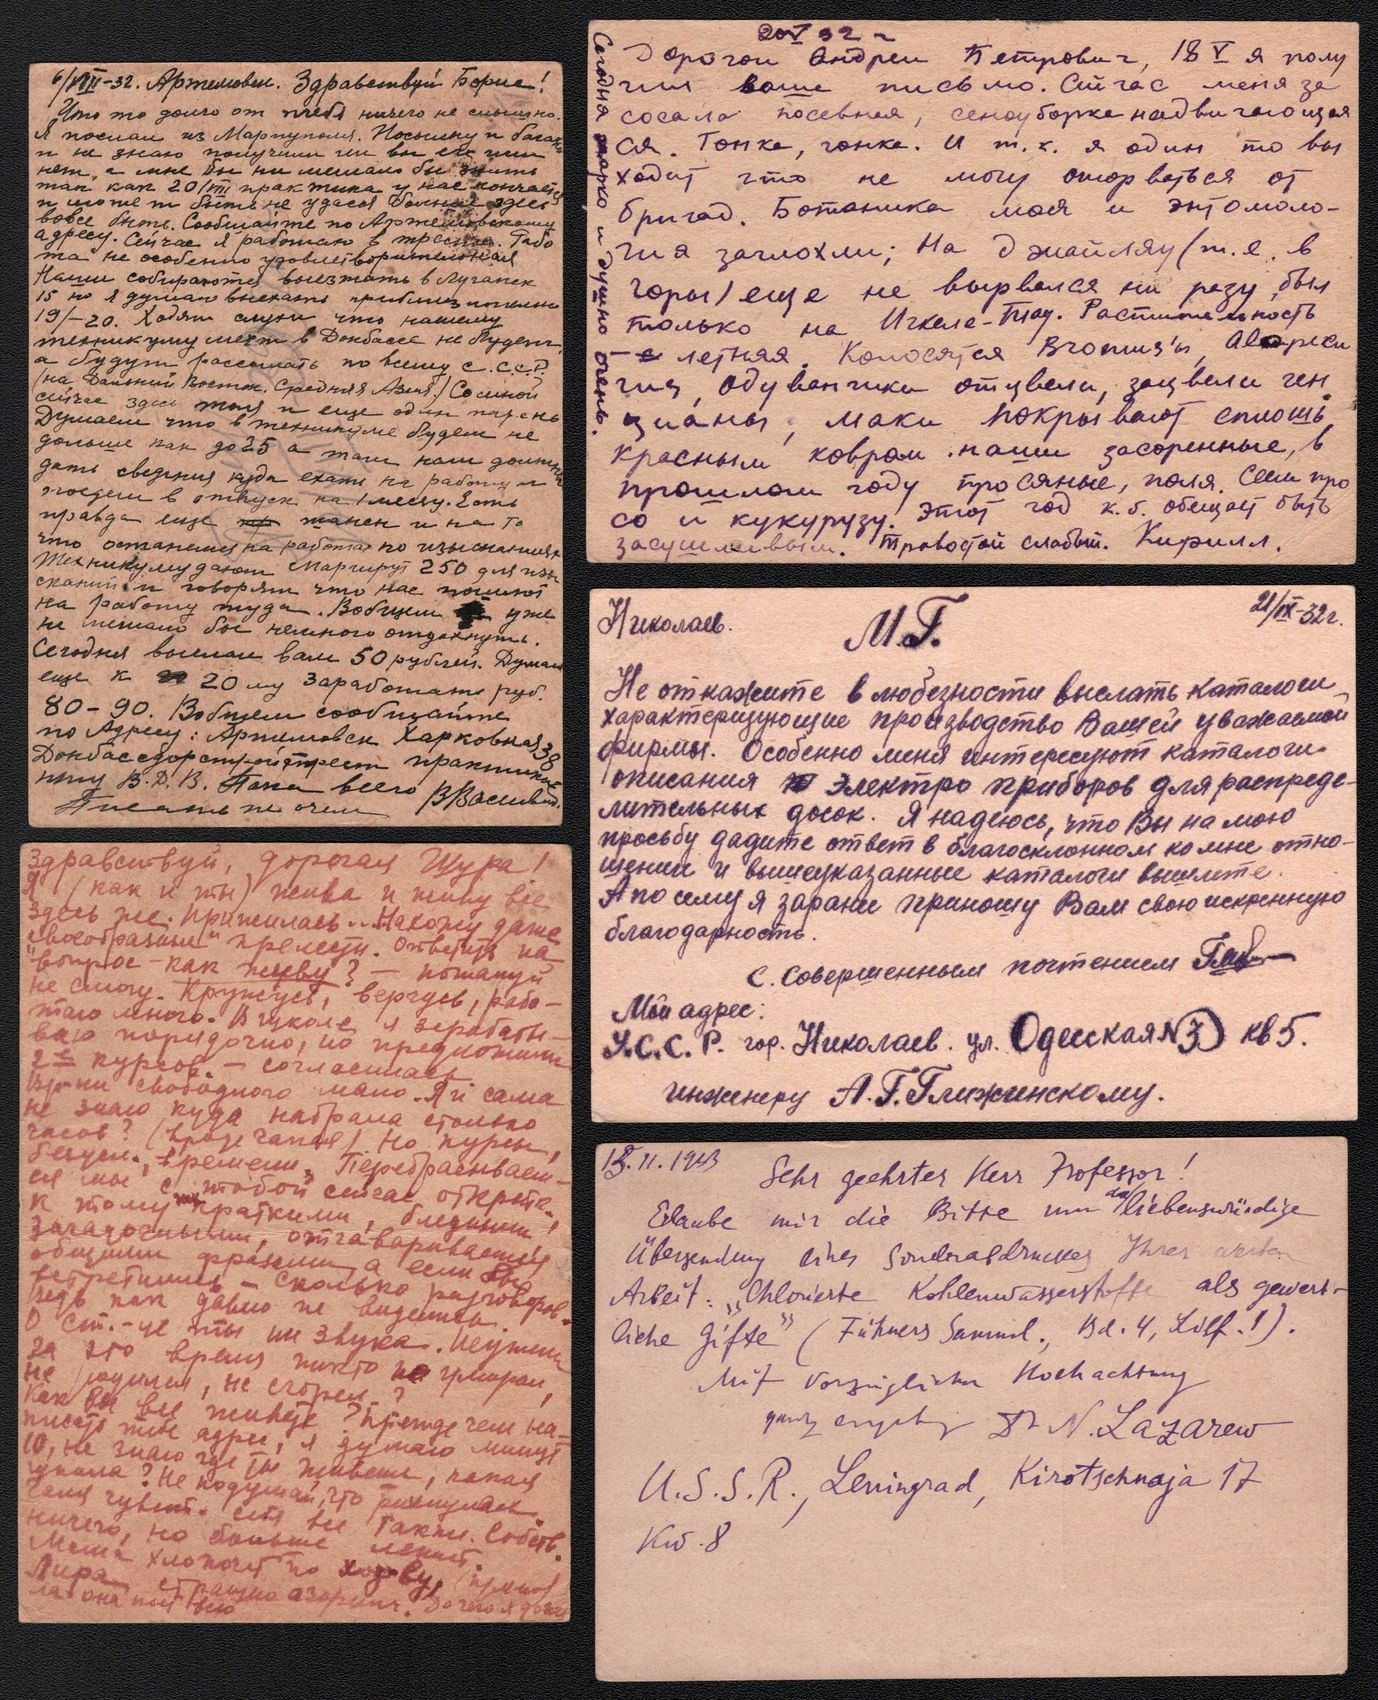 6/VIII-32. Артемовск. Здравствуй Борис!
Что то долго от тебя ничего не слышно.
Я послал из Мариуполя. Посылку и багаж
и не знаю получили ли вы ее или
нет, а мне бы ни мешало бы знать
так как 20/VIII практика у нас кончается
и может быть не удася больше здесь
вовсе быть. Сообщайте по Артемовскому
адресу. Сейчас я работаю в тресте. Рабо
та не особенно удовлетворительная
Наши собираются выезжать в Луганск
15 но я думаю выехать приблизительно
19/-20. Ходят слухи что нашему
техникуму мест в Донбассе не будет,
а будут рассылать по всему С.С.С.Р.
(на Дальний Восток. Средняя Азия.) Со мной
сейчас здесь и еще один парень
Думаем что в техникуме будем не
дольше как до 25 а там нам должны
дать сведения куда ехать на работу и
поедем в отпуск на 1 месяц. Есть
правда еще шанси и на то
что останемся на работах по изысканиям
Техникуму дают Маршрут 250 для изы
сканий и говорят что нас пошлют
на работу туда. Вобщем уже
не мешало бы немного отдохнуть.
Сегодня выслал вам 50 рублей. Думаю
еще к 20 му заработать руб.
80-90. Вобщем сообщайте
по Адресу: Артемовск Харковная 38
Донбассдорстройтрест практикан
ту В.Д.В. Пока всего
Писать не о чем
20 V 32 г
Дорогой Андрей Петрович, 18 V я полу
чил ваше письмо. Сйчас меня за
сосала посевная, сеноуборка надвигающая
ся. Гонка, гонка. И т.к. я один то вы
ходит что не могу оторваться от
бригад. Ботаника моя и энтомоло-
гия заглохли; На джайляу (т.е. в
горы) еще не вырвался ни разу, был
только на Ичкеле-Тау. Растительность
- летняя Колосятся
одуванчики отцвели, зацвели ген
цианы, маки покрывают сплошь
красным ковром наши засоренные, в
прошлом году просяные, поля. Сеем про
со и кукурузу. Этот год к.б. обещает быть
засушливым. Травостой слабый. Кирилл.
Сегодня жарко и душно очень.
Николаев.
21/IX-32г.
М.Г.
Не откажите в любезности выслать каталоги
характеризующие производство Вашей уважаемой
фирмы. Особенно меня интересуют каталоги
описания электро приборов для распреде-
лительных досок. Я надеюсь, что Вы на мою
просьбу дадите ответ в благосклонном ко мне отно-
шении и вышеуказанные каталоги вышлете.
А по сему я зарание приношу Вам свою искреннюю
благодарность.
С. совершенным почтением
Мой адрес:
У.С.С.Р. гор. Николаев. ул. Одесская № 7 кв 5.
инженеру А.Г. Глижинскому.
Здравствуй, дорогая Шура!
Я (как и ты) жива и живу все
здесь же. Прижилась.. Нахожу даже
"своеобразные" прелести. Ответить на
вопрос - как живу? - пожалуй
не смогу. Кружусь, верчусь, рабо-
таю много. В школе я зарабаты-
ваю порядочно, но предложили
курсов - согласилась.
Врени свободного мало. Я и сама
не знаю куда набрала столько
часов? Но курсы,
времени. Перебрасываем-
ся мы с тобой сейчас открытк.,
к тому же краткими, бледными,
загадочными,
общими фразами, а если бы
встретились - сколько разговоров.
Ведь как давно не виделись.
О ст.-це ты ни звука. Неужели
за это время никто не умирал,
не родился, не сгорел?
Как вы все живете? Прежде чем на-
писать твой адрес, я думаю минут
10, не знаю где ты живешь, какая
школа? Не подумай, что
ничего, но больше лежит.
Мама хлопочет по
Лира страшно
18.11.1943
Sehr geehrter Herr Professor!
Erlaube mir die Bitte um die liebenswürdige
Übersendung eines Sonderabdruckes Ihrer werten
Arbeit: "Chlorierte Kohlenwasserstoffe als gewerb-
liche Gifte" (Fühners Samml., Bd. 4, Lief. 1).
Mit vorzüglicher Hochachtung
ganz ergeb. Dr N. Lazarew
U.S.S.R., Leningrad, Kirotschnaja 17
Kw. 8